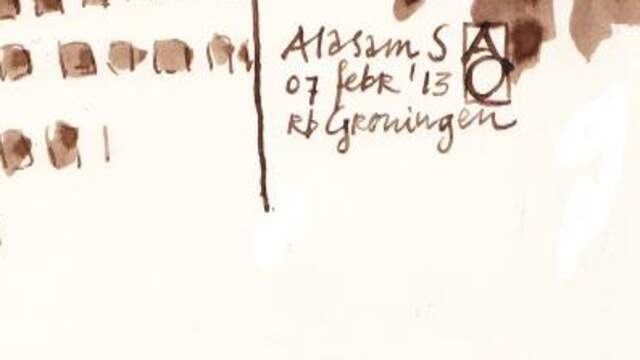 Alasam S
07 febr '13
Rb Groningen
AO